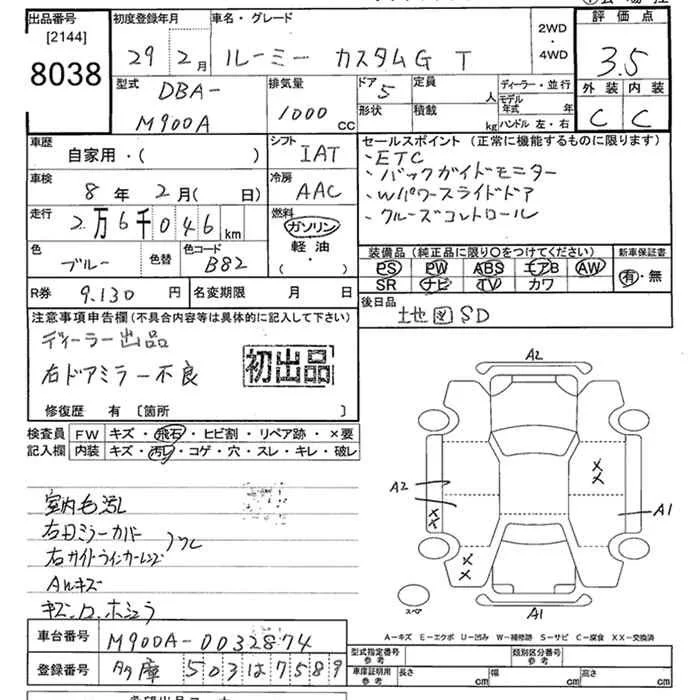 出品番号
[2144]
8038
初度登録年月
29年 2月
車名・グレード
ルーミー カスタムG T
2WD
・
4WD
評価点
3.5
外装 内装
C C
型式
DBA-
M900A
排気量
1000 cc
ドア
5
形状
定員
人
積載
kg
ディーラー・並行
モデル年式 年
ハンドル 左・右
車歴
自家用・( )
シフト
IAT
車検
8年 2月( 日)
冷房
AAC
走行
2万6千046km
燃料
ガソリン
軽油
( ・ )
色
ブルー
色替
色コード
B82
R券 9.130 円
名変期限 月 日
セールスポイント (正常に機能するものに限ります)
・ETC
・バックガイドモニター
・Wパワースライドドア
・クルーズコントロール
装備品(純正品に限り○をつけてください)
PS PW ABS エアB AW
SR ナビ TV カワ
新車保証書
有・無
後日品
地図SD
注意事項申告欄(不具合内容等は具体的に記入して下さい)
ディーラー出品
右ドアミラー不良
初出品
修復歴 有 [箇所 ]
検査員記入欄
FW キズ・飛石・ヒビ割・リペア跡・×要
内装 キズ・汚レ・コゲ・穴・スレ・キレ・破レ
室内毛汚レ
右Dミラーカバー
右サイドウインカーレンズ
ワレ
AWキズ
A2
A2
A1
A1
XX
XX
XX
スペア
A−キズ E−エクボ U−凹み W−補修跡 S−サビ C−腐食 XX−交換済
車台番号 M900A-0032874
登録番号 多摩 503は7589
型式指定番号
参考
類別区分番号
参考
車庫証明用
参考
長さ cm
幅 cm
高さ cm